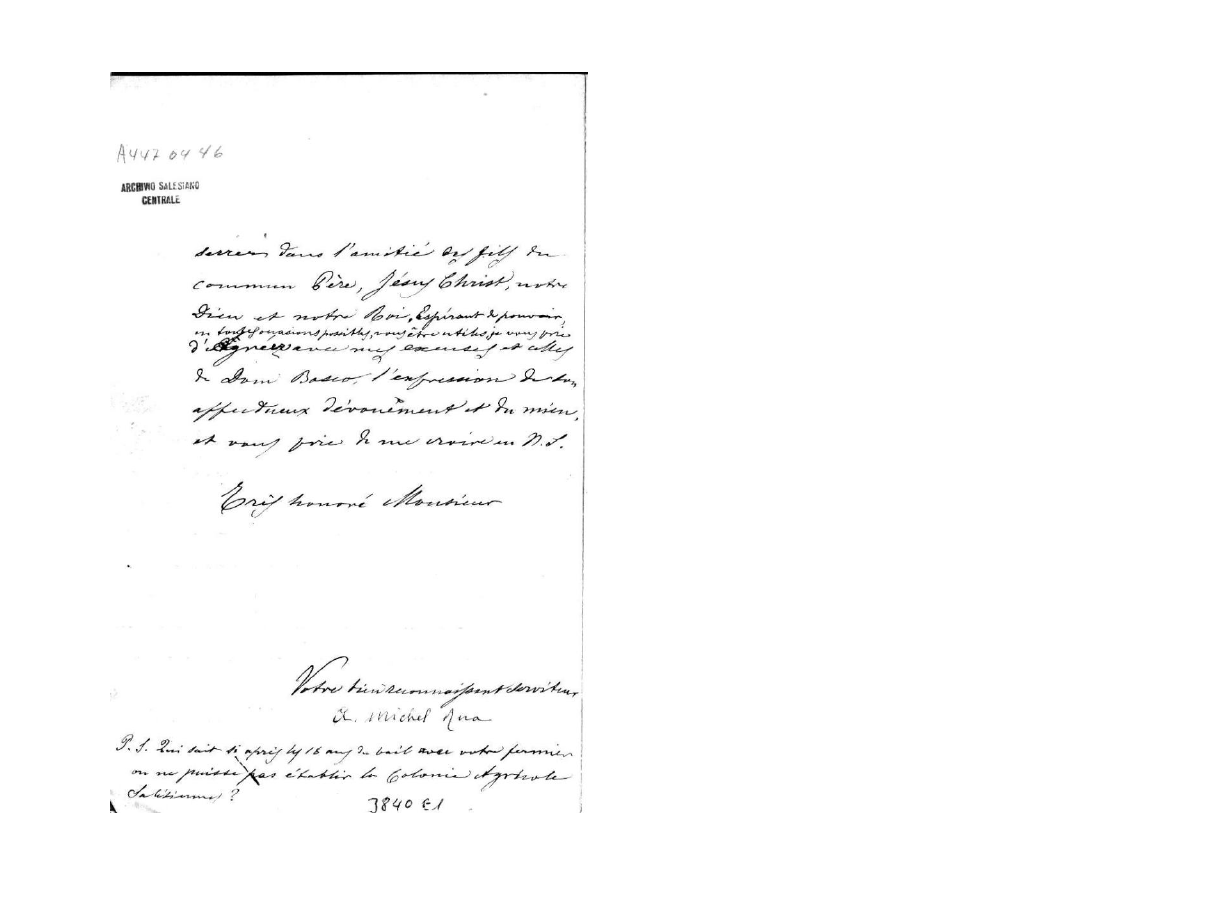 A447 04 46
ARCHIVIO SALESIANO
CENTRALE
serrés dans l'amitié des fils du
commun Père, Jésus Christ, notre
Dieu et notre Roi, Espérant de pouvoir,
en toutes occasions possibles, vous être utiles, je vous prie
d'Agréer avec mes excuses et celles
de Dom Bosco, l'expression de son
affectueux dévouèment et du mien,
et vous prie de me croire en N.S.
Très honoré Monsieur
Votre bien reconnaissant serviteur
Michel Rua
P. S. Qui sait si après les 16 ans du bail avec votre fermier
on ne puisse pas établir la Colonie Agricole
Salésienne ?
3840 E1